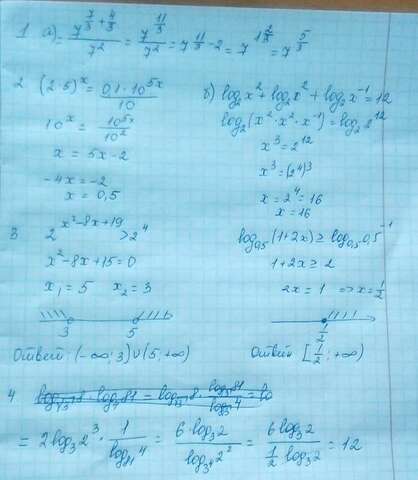 1 а) = 7^(7/3 + 4/3) / 7^2 = 7^(11/3) / 7^2 = 7^(11/3 - 2) = 7^(1 2/3) = 7^(5/3)
2 (2·5)^x = 0,1·10^(5x) / 10
10^x = 10^(5x) / 10^2
x = 5x-2
-4x = -2
x = 0,5
б) log₂x² + log₂x² + log₂x⁻¹ = 12
log₂(x²·x²·x⁻¹) = log₂2¹²
x³ = 2¹²
x³ = (2⁴)³
x = 2⁴ = 16
x = 16
3 2^(x²-8x+19) > 2⁴
x²-8x+15=0
x₁ = 5 x₂ = 3
3 5
Ответ: (-∞; 3)∪(5; +∞)
log₀,₅(1+2x) ≥ log₀,₅0,5⁻¹
1+2x ≥ 2
2x = 1 => x = 1/2
1/2
Ответ: [1/2; +∞)
4
= 2log₃2³ · 1/log₈₁4 = 6log₃2 / log₃⁴2² = 6log₃2 / (1/2 log₃2) = 12